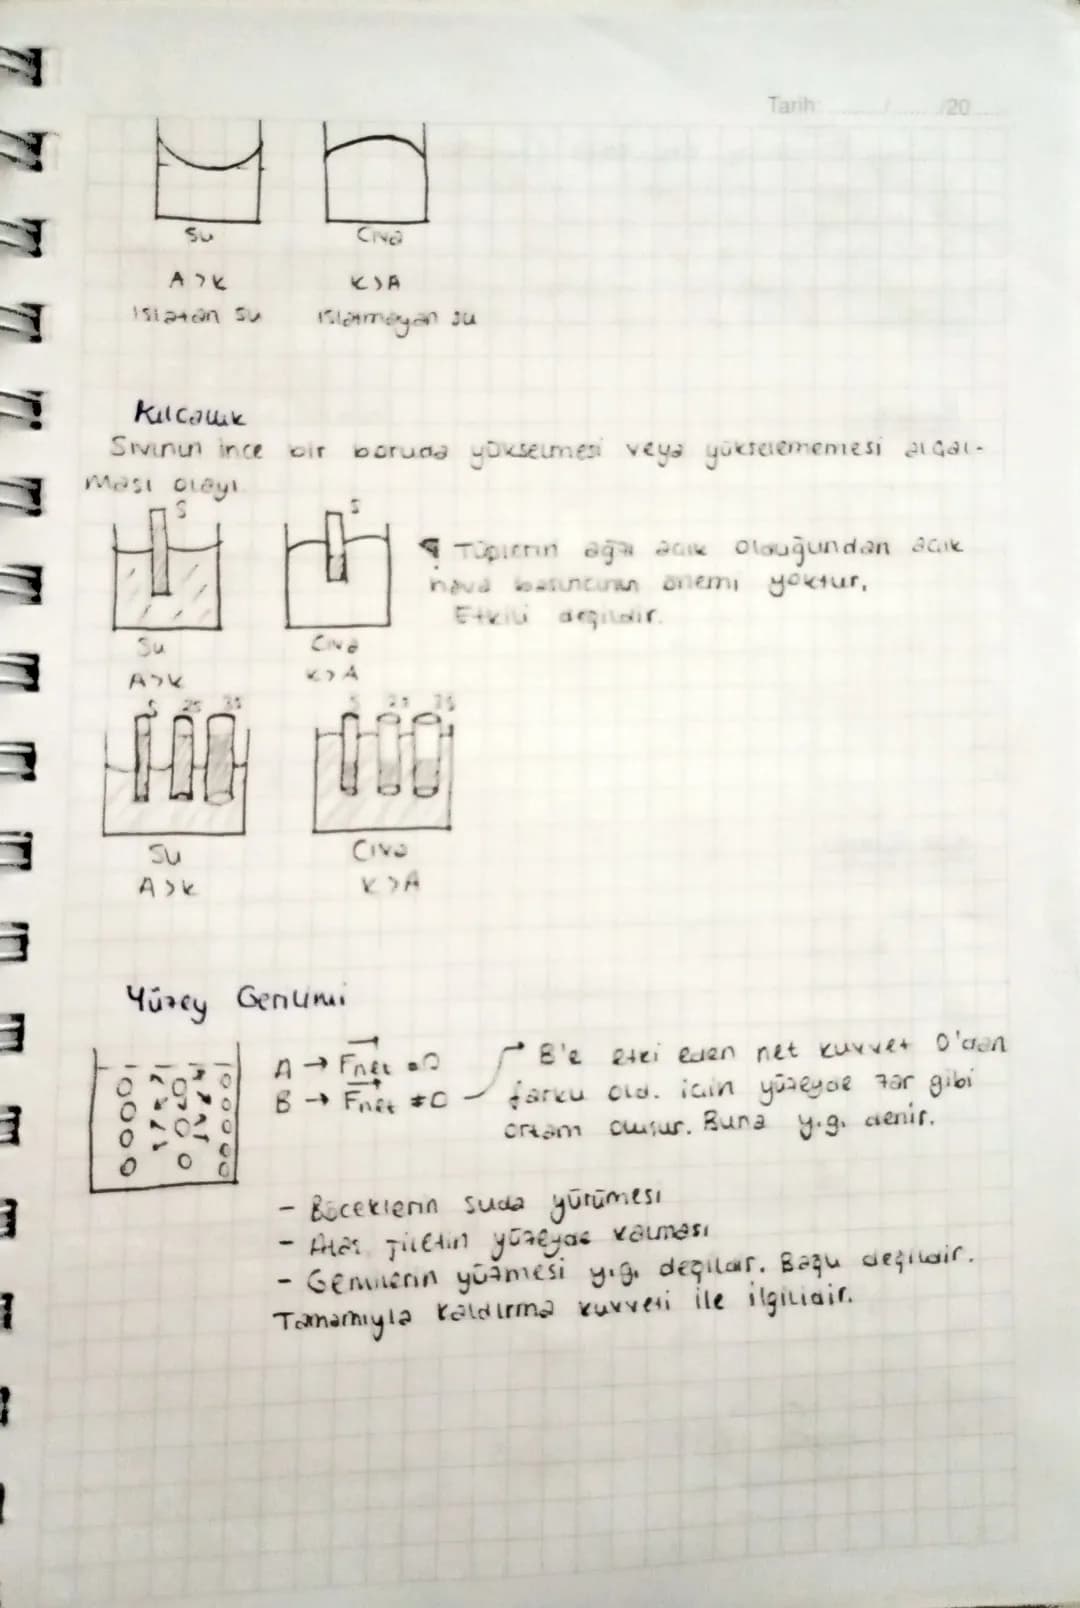 Tarih: ....... / ....... /20 .......
Su Civa
A>K K>A
ıslatan su ıslatmayan su
Kılcallık
Sıvının ince bir boruda yükselmesi veya yükselememesi alçal-
ması olayı.
S S
Tüplerin ağzı açık olduğundan açık
hava basıncının önemi yoktur,
Etkili değildir.
Su Civa
A>K K>A
S 2S 3S S 2S 3S
Su Civa
A>K K>A
Yüzey Gerilimi
A → Fnet = 0
B → Fnet ≠ 0
B'e etki eden net kuvvet 0'dan
farklı old. için yüzeyde zar gibi
ortam oluşur. Buna y.g. denir.
- Böceklerin suda yürümesi
- Ataş, jiletin yüzeyde kalması
- Gemilerin yüzmesi y.g. değildir. Bağlı değildir.
Tamamıyla kaldırma kuvveti ile ilgilidir.